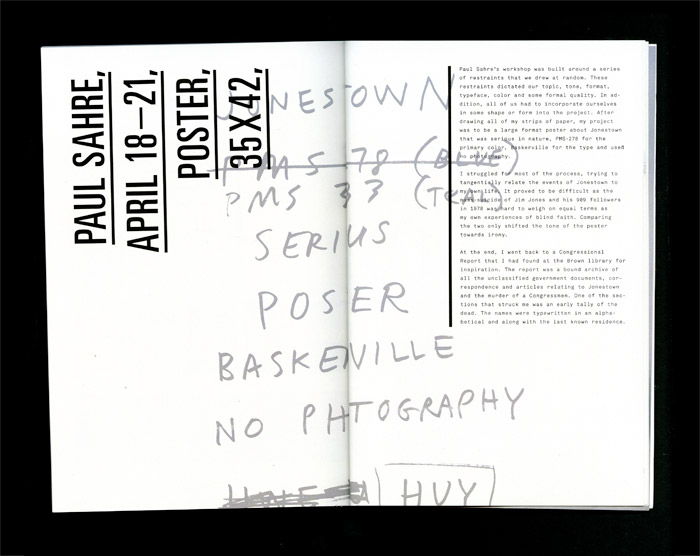 PAUL SAHRE,
APRIL 18–21,
POSTER,
35X42,
JONESTOWN
PMS 78 (BLUE)
PMS 33 (TEAL)
SERIUS
POSER
BASKEVILLE
NO PHTOGRAPHY
HVY
Paul Sahre's workshop was built around a series
of restraints that we drew at random. These
restraints dictated our topic, tone, format,
typeface, color and some formal quality. In ad-
dition, all of us had to incorporate ourselves
in some shape or form into the project. After
drawing all of my strips of paper, my project
was to be a large format poster about Jonestown
that was serious in nature, PMS-278 for the
primary color, Baskerville for the type and used
no photography.
I struggled for most of the process, trying to
tangentially relate the events of Jonestown to
my own life. It proved to be difficult as the
of Jim Jones and his 909 followers
in 1978 was hard to weigh on equal terms as
my own experiences of blind faith. Comparing
the two only shifted the tone of the poster
towards irony.
At the end, I went back to a Congressional
Report that I had found at the Brown library for
inspiration. The report was a bound archive of
all the unclassified government documents, cor-
respondence and articles relating to Jonestown
and the murder of a Congressmen. One of the sec-
tions that struck me was an early tally of the
dead. The names were typewritten in an alpha-
betical and along with the last known residence.